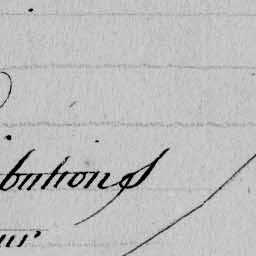 butions
ur